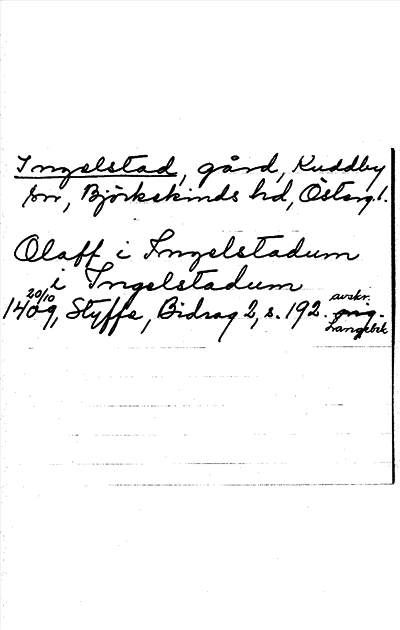 Ingelstad, gård, Kuddby
sn, Björkekinds hd, Östergl.
Olaff i Ingelstadum
i Ingelstadum
20/10 avskr.
1409, Styffe, Bidrag 2, s. 192. orig.
Langebek